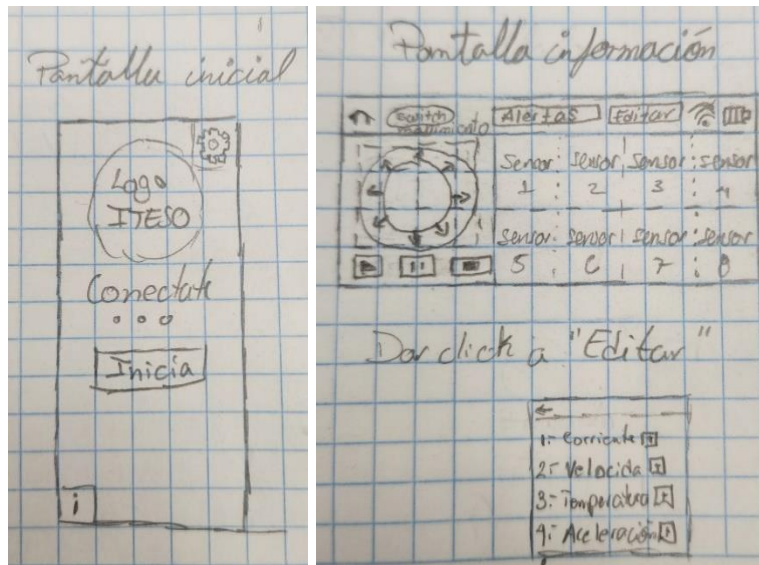 Pantalla inicial
Logo
ITESO
Conectate
Inicia
i
Pantalla información
Switch Alertas Editar
movimiento
Sensor Sensor Sensor Sensor
1 2 3 4
Sensor Sensor Sensor Sensor
5 6 7 8
Dar click a "Editar"
1.- Corriente
2.- Velocida
3.- Temperatura
4.- Aceleración